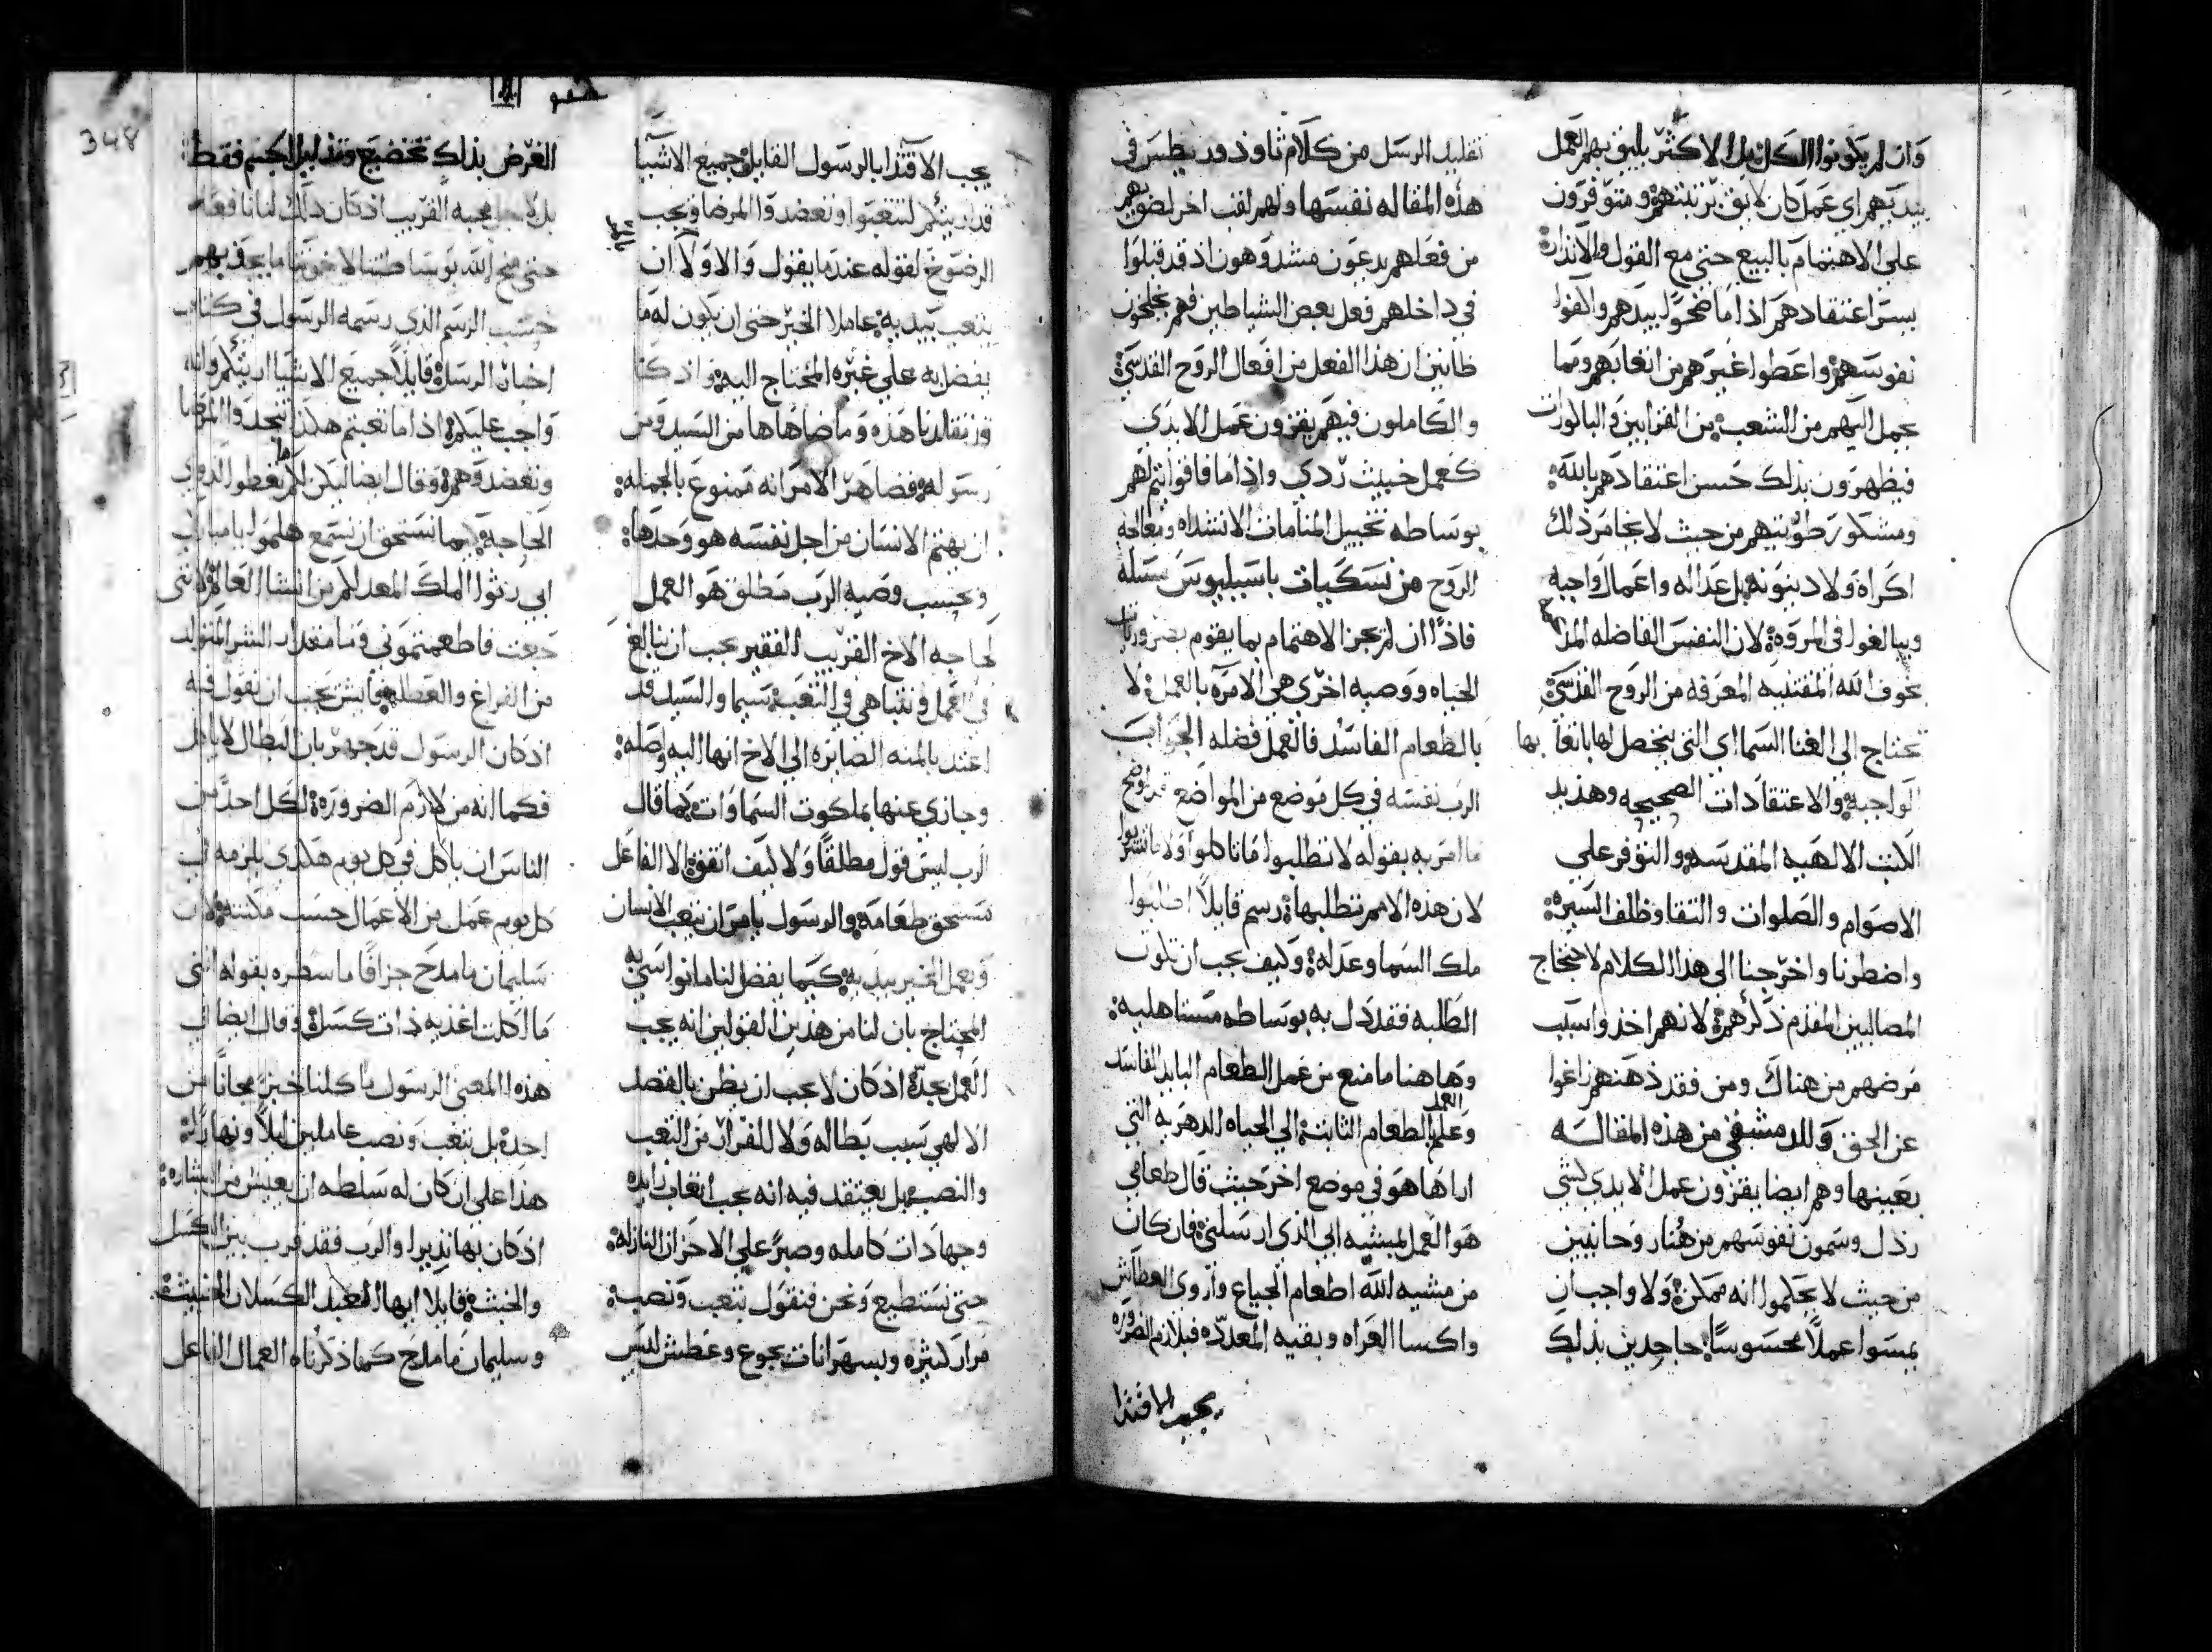 وان لم يكونوا الكل بل الاكثر يليق بهم العمل
بيديهم اي عمل كان لايق برتبتهم ومتوفرون
على الاهتمام بالبيع حتى مع القول والانذار
بسر اعتقادهم اذا ما ضحوا بيدهم والقوا
نفوسهم واعطوا غيرهم من اتعابهم ومما
يحمل اليهم من الشعب من القرابين والباكورات
فيظهرون بذلك حسن اعتقادهم بالله
ومشكور طويتهم من حيث لا يخامر ذلك
اكراه ولا دينونه بل عداله واعمال واجبه
ويبالغوا في المروة لان النفس الفاضله
بخوف الله المقتنيه المعرفه من الروح القدسي
تحتاج الى الغنا السماي التي يتحصل لها باتعابها
الواجبه والاعتقادات الصحيحه وهذيذ
الكتب الالهيه المقدسه والتوفر على
الاصوام والصلوات والنقا وظلف السيره
واضطرنا واخرجنا الى هذا الكلام لاحتجاج
المصاليين المقدم ذكرهم لانهم اخذوا سبب
مرضهم من هناك ومن فقد ذهنهم زاغوا
عن الحق وللدمشقي من هذه المقاله
بعينها وهم ايضا يقرون عمل الايدي لشي
رذل وسمون نفوسهم من هنا روحانيين
من حيث لا يحكموا انه ممكن ولا واجب ان
يمسوا عملا محسوسا جاحدين بذلك
تقليد الرسل من كلام ثاوذوريطس في
هذه المقاله نفسها ولهم لقب اخر لصق بهم
من فعلهم يدعون مشدوهون اذ قد قبلوا
في داخلهم فعل بعض الشياطين فهم يختلجون
ظانين ان هذا الفعل من افعال الروح القدسي
والكاملون فيهم يقرون عمل الايدي
كعمل خبيث ردي واذا ما فاقوا يتم لهم
بوساطه تخييل المنامات الانشداه ومعالجه
الروح من نسكيات باسيليوس مسله
فاذا ان لم يجز الاهتمام بما يقوم بضروريات
الحياه ووصيه اخرى هي الامره بالعمل لا
بالطعام الفاسد فالعمل فضله الجواب
الرب نفسه في كل موضع من المواضع قد اوضح
ما امر به بقوله لا تطلبوا ما تاكلوا ولا ما تشربوا
لان هذه الامم تطلبها رسم قايلا اطلبوا
ملك السما وعدله وكيف يجب ان تكون
الطلبه فقد دل به بوساطه مستاهليه
وهاهنا ما منع من عمل الطعام البايد الفاسد
وعلم العمل الطعام الثابت الى الحياه الدهريه التي
اراها هو في موضع اخر حيث قال طعامي
هو العمل بمشيه ابي الذي ارسلني فان كان
من مشيه الله اطعام الجياع واروى العطاش
واكسا العراه وبقيه المعدده فبلازم الضروره
يجب الاقتدا
348
يجب الاقتدا بالرسول القايل جميع الاشيا
قد اريتكم لتتعبوا وتعضدوا المرضا ويجب
الرضوخ لقوله عندما يقول والاولا ان
يتعب بيديه عاملا الخير حتى ان يكون له ما
يفضل به على غيره المحتاج اليه واذ كنا
وزنقالدنا هذه وما ضاهاها من السيد ومن
رسوله فقد ظهر الامر انه ممنوع بالجمله
ان يهتم الانسان من اجل نفسه هو وحدها
وبحسب وصيه الرب مطلق هو العمل
لحاجه الاخ القريب الفقير يجب ان يبالغ
في العمل ونتباهى في التعب سيما والسيد قد
اعتد بالمنه الصايره الى الاخ انها اليه واصله
وجازي عنها بملكوت السماوات كما قال
الرب ليس قول مطلقا ولا كيف اتفق الا الفاعل
يستحق طعامه والرسول يامر ان يتعب الانسان
ويعمل الخير بيديه كيما يفضل لنا ما نواسي به
المحتاج بان لنا من هذين القولين انه يجب
العمل بجده اذ كان لا يجب ان يظن بالقصد
الالهي سبب بطاله ولا للفرار من التعب
والنصب بل يعتقد فيه انه يجب اتعاب زايده
وجهادات كامله وصبر على الاحزان النازله
حتى نستطيع ونحن فنقول بتعب ونصب
مرار كثيره وبسهرانات بجوع وعطش ليس
الغرض بذلك تخضيع وتذليل الجسم فقط
بل لاجل محبه القريب اذ كان ذلك لنا نافعا
حتى يمنح الله بوساطتنا لاخوتنا ما يجدو بهم
حسب الرسم الذي رسمه الرسول في كتاب
اخبار الرسل قايلا جميع الاشيا اريتكم وانه
واجب عليكم اذا ما تعبتم هكذا تنجدوا المرضا
وتعضدوهم وقال ايضا ليكن لكم ما تعطوا لذوي
الحاجه كيما نستحق ان نسمع هلموا يا مباركي
ابي رثوا الملك المعد لكم من انشا العالم لانني
جعت فاطعمتموني وما مقدار الشر المتولد
من الفراغ والعطله فايش يجب ان نقول فيه
اذ كان الرسول قد جهر بان البطال لا ياكل
فكما انه من لازم الضروره لكل احد من
الناس ان ياكل في كل يوم هكذى يلزمه في
كل يوم عمل من الاعمال حسب مكنته لان
سليمان ما مدح جزافا ما سطره بقوله انني
ما اكلت اغذيه ذات كسل وقال ايضا في
هذا المعنى الرسول ما اكلنا خبز مجانا من
احد بل بتعب ونصب عاملين ليلا ونهارا
هذا على ان كان له سلطه ان يعيش من البشاره
اذ كان بها نذيرا والرب فقد قرب بين الكسل
والخبث قايلا ايها العبد الكسلان الخبيث
وسليمان ما مدح كما ذكرناه العمال الفاعل